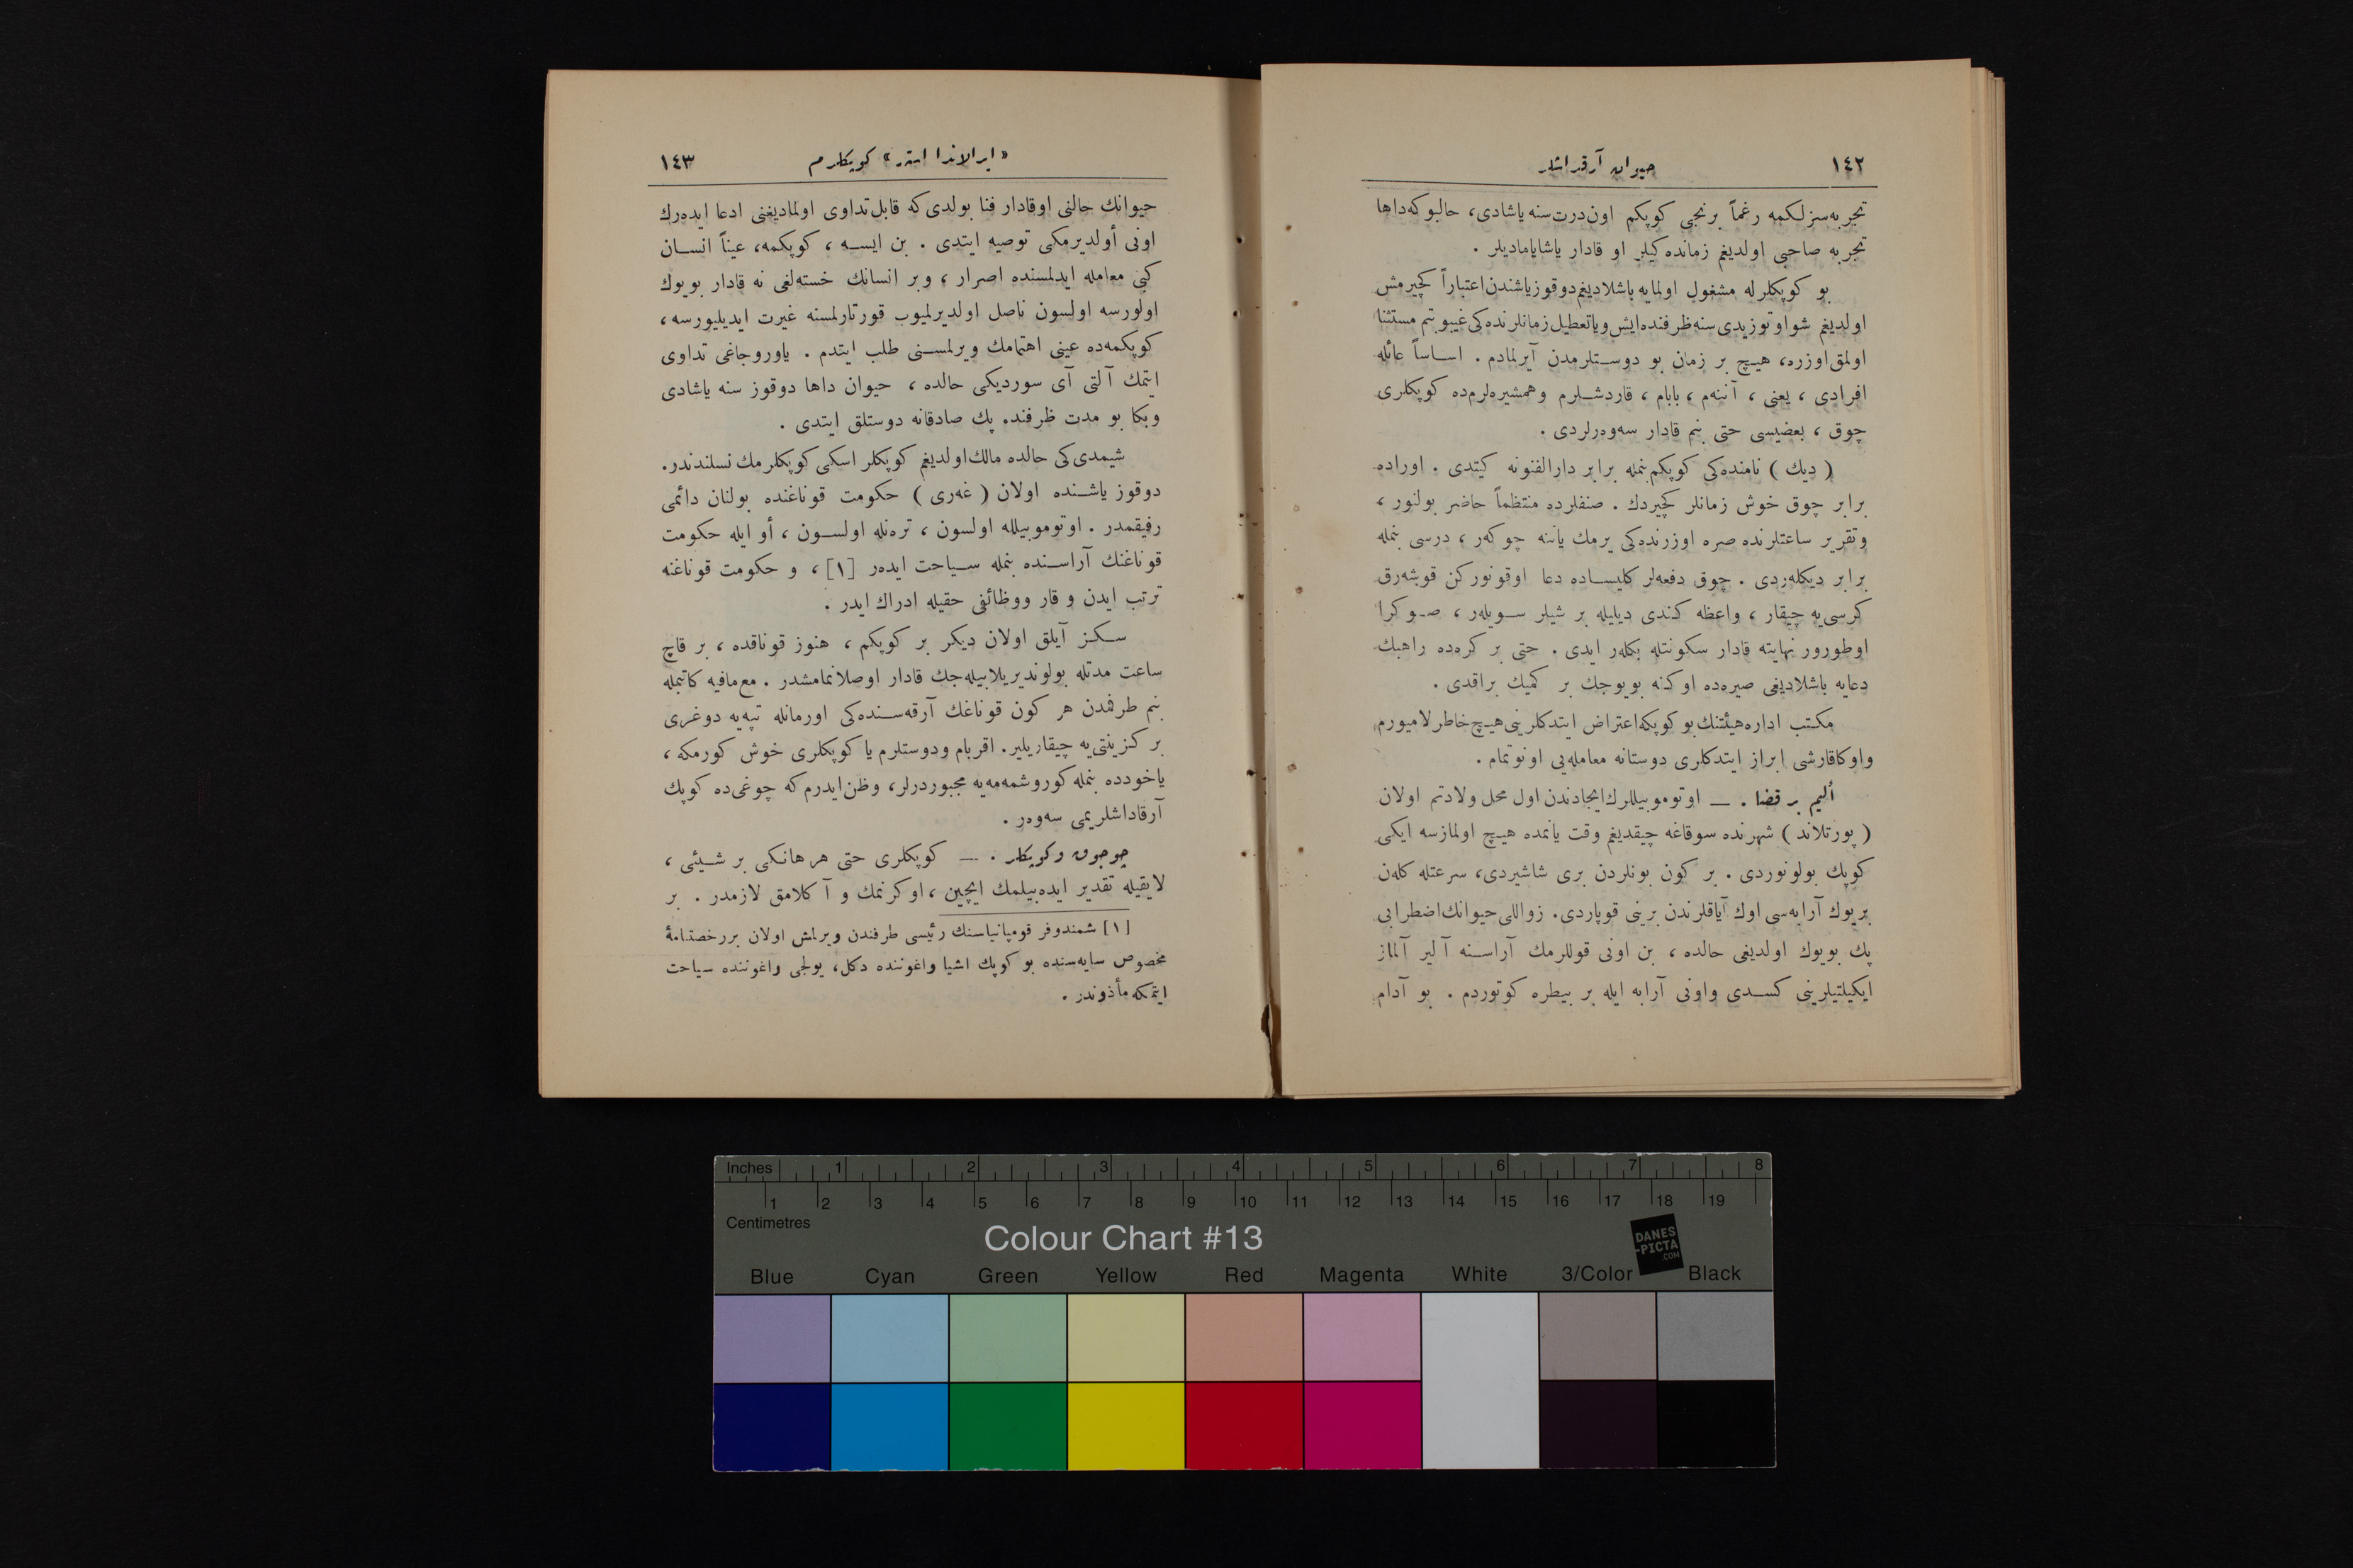 ١٤٢
حيوان آرقداشلر
تجربه‌سزلكمه رغماً برنجى كوپكم اون‌درت‌سنه ياشادى، حالبوكه‌داها
تجربه صاحبى اولديغم زمانده‌كيلر او قادار ياشايامادیلر .
بو كوپكلرله مشغول اولمايه باشلاديغم‌دوقوزياشندن‌اعتباراً كچيرمش
اولديغم شواوتوزيدى‌سنه‌ظرفنده‌ايش‌وياتعطيل‌زمانلرنده‌كى‌غيبوبتم مستثنا
اولمق‌اوزره، هيچ بر زمان بو دوستلرمدن آيرلمادم . اساساً عائله
افرادى ، يعنى ، آننه‌م ، بابام ، قاردشلرم وهمشيره‌لرم‌ده كوپكلرى
چوق ، بعضيسى حتى بنم قادار سه‌وه‌رلردى .
( ديك ) نامنده‌كى كوپكم‌بنمله برابر دارالفنونه كيتدى . اوراده
برابر چوق خوش زمانلر كچيردك . صنفلرده منتظماً حاضر بولنور ،
وتقرير ساعتلرنده صره اوزرنده‌كى يرمك ياننه چوكه‌ر ، درسى بنمله
برابر ديكله‌ردى . چوق دفعه‌لر كليساده دعا اوقونوركن قوشه‌رق
كرسى‌يه چيقار ، واعظه كندى ديليله بر شيلر سويله‌ر ، صوكرا
اوطورور نهايته قادار سكونتله بكله‌ر ايدى . حتى بر كره‌ده راهبك
دعايه باشلاديغى صيره‌ده اوكنه بويوجك بر كميك براقدى .
مكتب اداره‌هيئتنك‌بوكوپكه‌اعتراض ايتدكلرينى‌هيچ‌خاطرلاميورم
واوكاقارشى ابراز ايتدكلرى دوستانه معامله‌يى اونوتمام .
أليم بر قضا . — اوتوموبيللرك‌ايجادندن اول محل ولادتم اولان
( پورتلاند ) شهرنده سوقاغه چيقديغم وقت يانمده هيچ اولمازسه ايكى
كوپك بولونوردى . بر كون بونلردن برى شاشيردى، سرعتله كله‌ن
بريوك آرابه‌سى اوك آياقلرندن برينى قوپاردى. زواللى‌حيوانك‌اضطرابى
پك بويوك اولديغى حالده ، بن اونى قوللرمك آراسنه آلير آلماز
ايكيلتيلرينى كسدى واونى آرابه ايله بر بيطره كوتوردم . بو آدام
«ايرلاندا ايستهر» كوپكلرم
١٤٣
حيوانك حالنى اوقادار فنا بولدى‌كه قابل‌تداوى اولماديغنى ادعا ايده‌رك
اونى أولديرمكى توصيه ايتدى . بن ايسه ، كوپكمه، عيناً انسان
كبى معامله ايدلمسنده اصرار ، وبر انسانك خسته‌لغى نه قادار بويوك
اولورسه اولسون ناصل اولديرلميوب قورتارلمسنه غيرت ايديليورسه ،
كوپكمه‌ده عينى اهتمامك ويرلمسنى طلب ايتدم . ياوروجاغى تداوى
ايتمك آلتى آى سورديكى حالده ، حيوان داها دوقوز سنه ياشادى
وبكا بو مدت ظرفنده پك صادقانه دوستلق ايتدى .
شيمدى‌كى حالده مالك‌اولديغم كوپكلر اسكى‌كوپكلرمك نسلندندر.
دوقوز ياشنده اولان ( غه‌رى ) حكومت قوناغنده بولنان دائمى
رفيقمدر . اوتوموبيلله اولسون ، ترەنله اولسون ، أو ايله حكومت
قوناغنك آراسنده بنمله سياحت ايده‌ر [١] ، و حكومت قوناغنه
ترتب ايدن و قار ووظائفى حقيله ادراك ايدر .
سكز آيلق اولان ديكر بر كوپكم ، هنوز قوناقده ، بر قاچ
ساعت مدتله بولونديريلابيله‌جك قادار اوصلانمامشدر . مع‌مافيه كاتبمله
بنم طرفمدن هر كون قوناغك آرقه‌سنده‌كى اورمانله تپه‌يه دوغرى
بر كزينتى‌يه چيقاريلير. اقربام ودوستلرم يا كوپكلرى خوش كورمكه ،
ياخودده بنمله كوروشمه‌مه‌يه مجبوردرلر، وظن‌ايدرم كه چوغى‌ده كوپك
آرقاداشلريمى سه‌وه‌ر .
چوجوق وكوپكلر . — كوپكلرى حتى هر هانكى بر شيئى ،
لايقيله تقدير ايده‌بيلمك ايچين ، اوكرنمك و آكلامق لازمدر . بر
[١] شمندوفر قومپانياسنك رئيسى طرفندن ويرلمش اولان بررخصتنامهٔ
مخصوص سايه‌سنده بو كوپك اشيا واغوننده دكل، يولجى واغوننده سياحت
ايتمكه مأذوندر .
Inches 1 2 3 4 5 6 7 8
1 2 3 4 5 6 7 8 9 10 11 12 13 14 15 16 17 18 19
Centimetres
Colour Chart #13
DANES
-PICTA
.COM
Blue Cyan Green Yellow Red Magenta White 3/Color Black